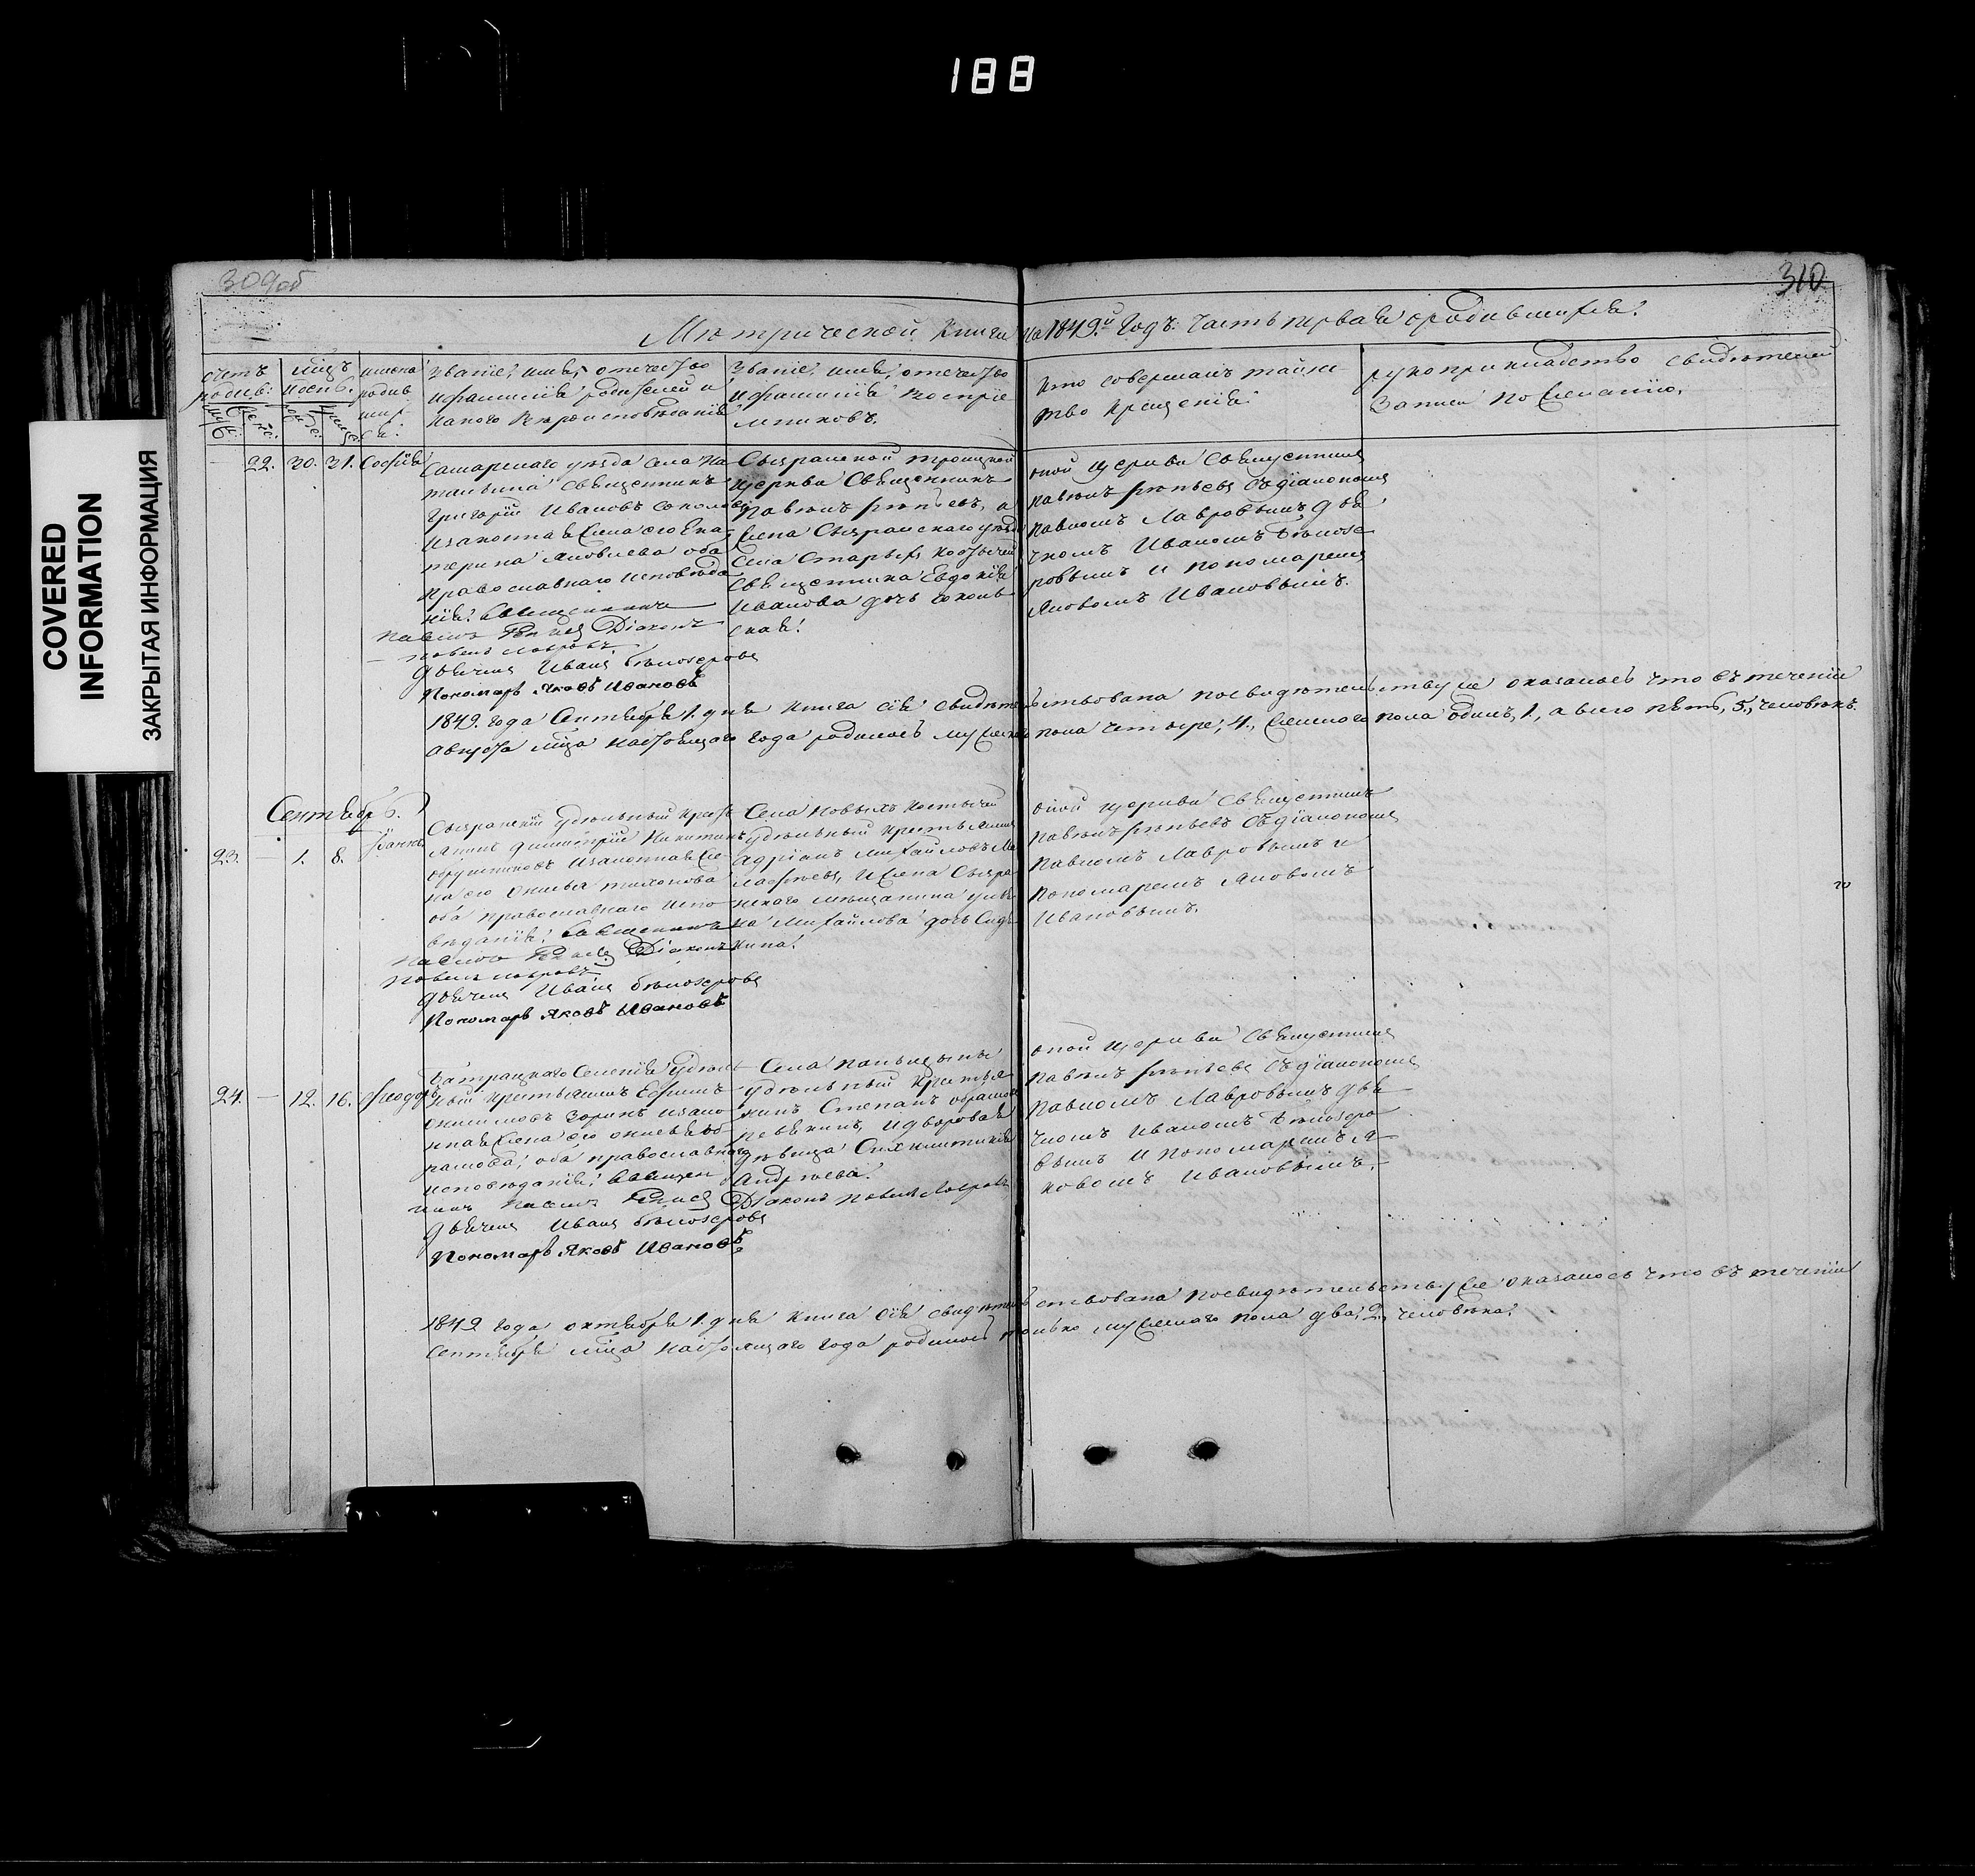 188
COVERED
INFORMATION
ЗАКРЫТАЯ ИНФОРМАЦИЯ
309об
310
Метрической книги на 1849й годъ. Часть первая о родившихся.
счетъ родив:
мсцъ
имена родив ших ся.
Званіе, имя, отечество
и фамилія родителей и
какого вѣроисповѣданія
Званіе, имя, отечество
и фамилія воспріе
мниковъ.
Кто совершалъ таинс
тво крещенія
рукоприкладство свидѣтелей
записи по желанію.
22. 30. 31. Софія
Самарскаго уѣзда села На
священникъ
Григорій Ивановъ Соколовъ
и законная жена его Ека
терина Яковлева оба
православнаго исповѣда
нія. Священникъ
Діаконъ
Павелъ Лавровъ
дьячекъ Иванъ Бѣлозеровъ
Пономарь Яковъ Ивановъ
Сызранской троицкой
церкви священникъ
а
села Старыхъ Костычей
священника Евдокія
Иванова дочь Соколь
ская.
оной церкви священникъ
съ діакономъ
Павломъ Лавровымъ дья
чкомъ Иваномъ Бѣлозе
ровымъ и пономаремъ
Яковомъ Ивановымъ.
1849. года Сентября 1. дня книга сія свидѣтельствована по свидѣтельству же оказалось что въ теченіи
Августа мсца настоящаго года родилось мужеска пола четыре, 4., женскаго пола одинъ, 1., а всего пять, 5., человѣкъ.
Сентябрь.
23. — 1. 8.
Сызранскій удѣльный крест
янинъ Димитрій Никитинъ
и законная же
на его
оба православнаго испо
вѣданія. Священникъ
Діаконъ
Павелъ Лавровъ
дьячекъ Иванъ Бѣлозеровъ
Пономарь Яковъ Ивановъ
Села Новыхъ Костычей
удѣльный крестьянинъ
Адріанъ Михайловъ
и жена Сызра
нскаго мещанина
Михайлова дочь
оной церкви священникъ
съ діакономъ
Павломъ Лавровымъ и
пономаремъ Яковомъ
Ивановымъ.
24. — 12. 16. Феодоръ
Батрацкаго селенія удѣль
ный крестьянинъ Ефимъ
Зоринъ и зако
нная жена его
оба православнаго
исповѣданія. Священ
никъ
дьячекъ Иванъ Бѣлозеровъ
Пономарь Яковъ Ивановъ
Села
удѣльный крестья
нинъ Степанъ
и дворовая
дѣвица
Андреева.
Діаконъ Павелъ Лавровъ
оной церкви священникъ
съ діакономъ
Павломъ Лавровымъ дья
чкомъ Иваномъ Бѣлозеро
вымъ и пономаремъ Я
ковомъ Ивановымъ.
1849 года октября 1. дня книга сія свидѣтельствована по свидѣтельству же оказалось что въ теченіи
Сентября мсца настоящаго года родилось только мужескаго пола два, 2., человѣка.